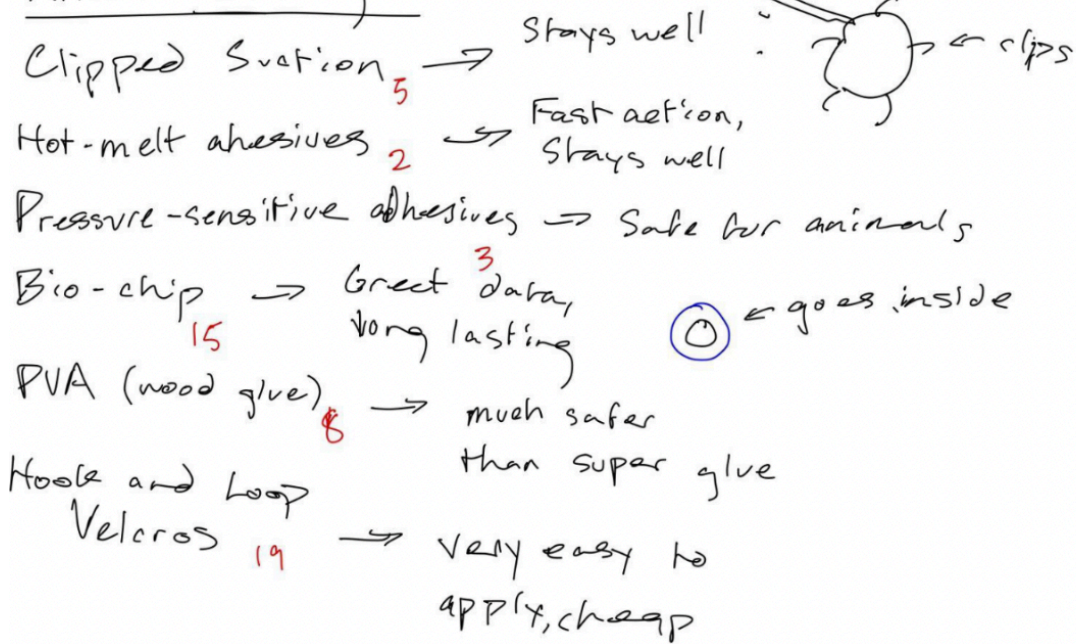 Clipped Suction 5 → Stays well
← clips
Hot-melt ahesives 2 → Fast action,
Stays well
Pressure-sensitive adhesives 3 → Safe for animals
Bio-chip 15 → Great data,
long lasting
← goes inside
PVA (wood glue) 8 → much safer
than super glue
Hook and Loop
Velcros 19 → very easy to
apply, cheap